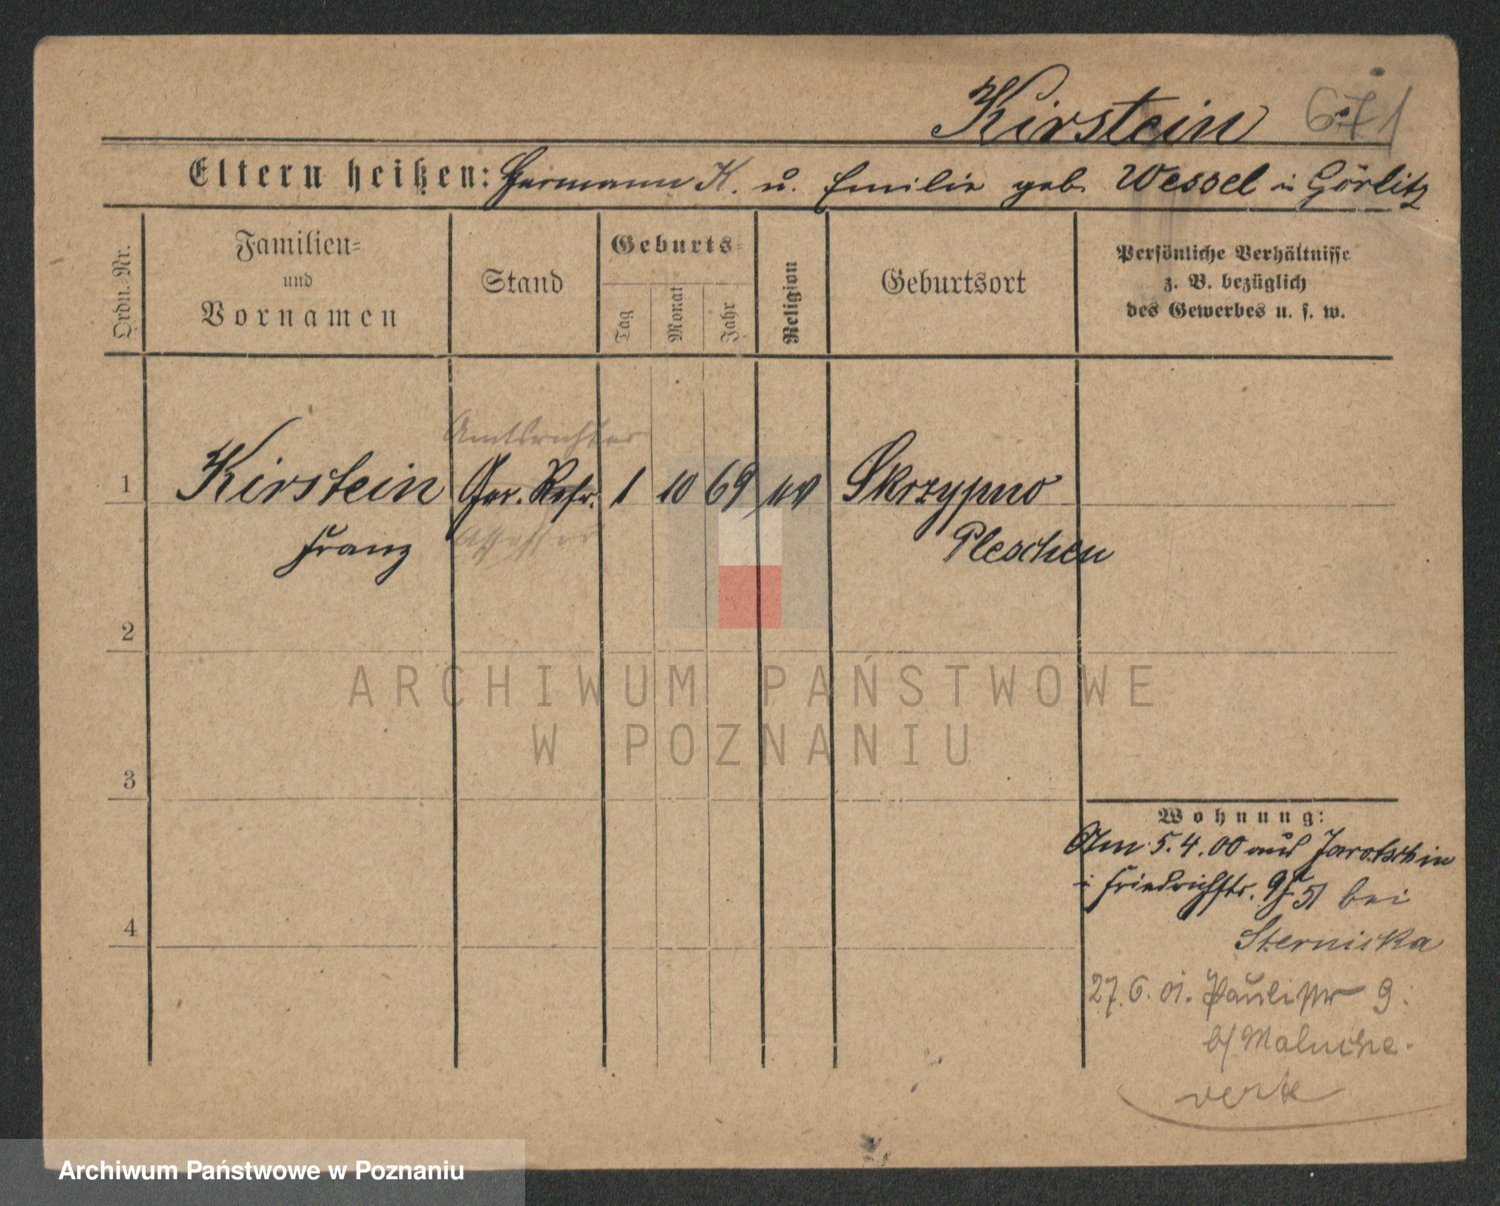 Kirstein 671
Eltern heißen: Hermann K. u. Emilie geb. Wessel in Görlitz
Ordn. Nr.
Familien-
und
Vornamen
Stand
Geburts-
Tag
Monat
Jahr
Religion
Geburtsort
Persönliche Verhältnisse
z. B. bezüglich
des Gewerbes u. s. w.
Amtsrichter
1 Kirstein Ger. Refr. 1 10 69 ev Skrzypno
Franz Assessor Pleschen
2
3
4
Wohnung:
Am 5.4.00 aus Jarotschin
i Friedrichstr. bei
Sternicka
27.6.01. Paulistr 9.
b/ Maluche.
ARCHIWUM PAŃSTWOWE
W POZNANIU
Archiwum Państwowe w Poznaniu